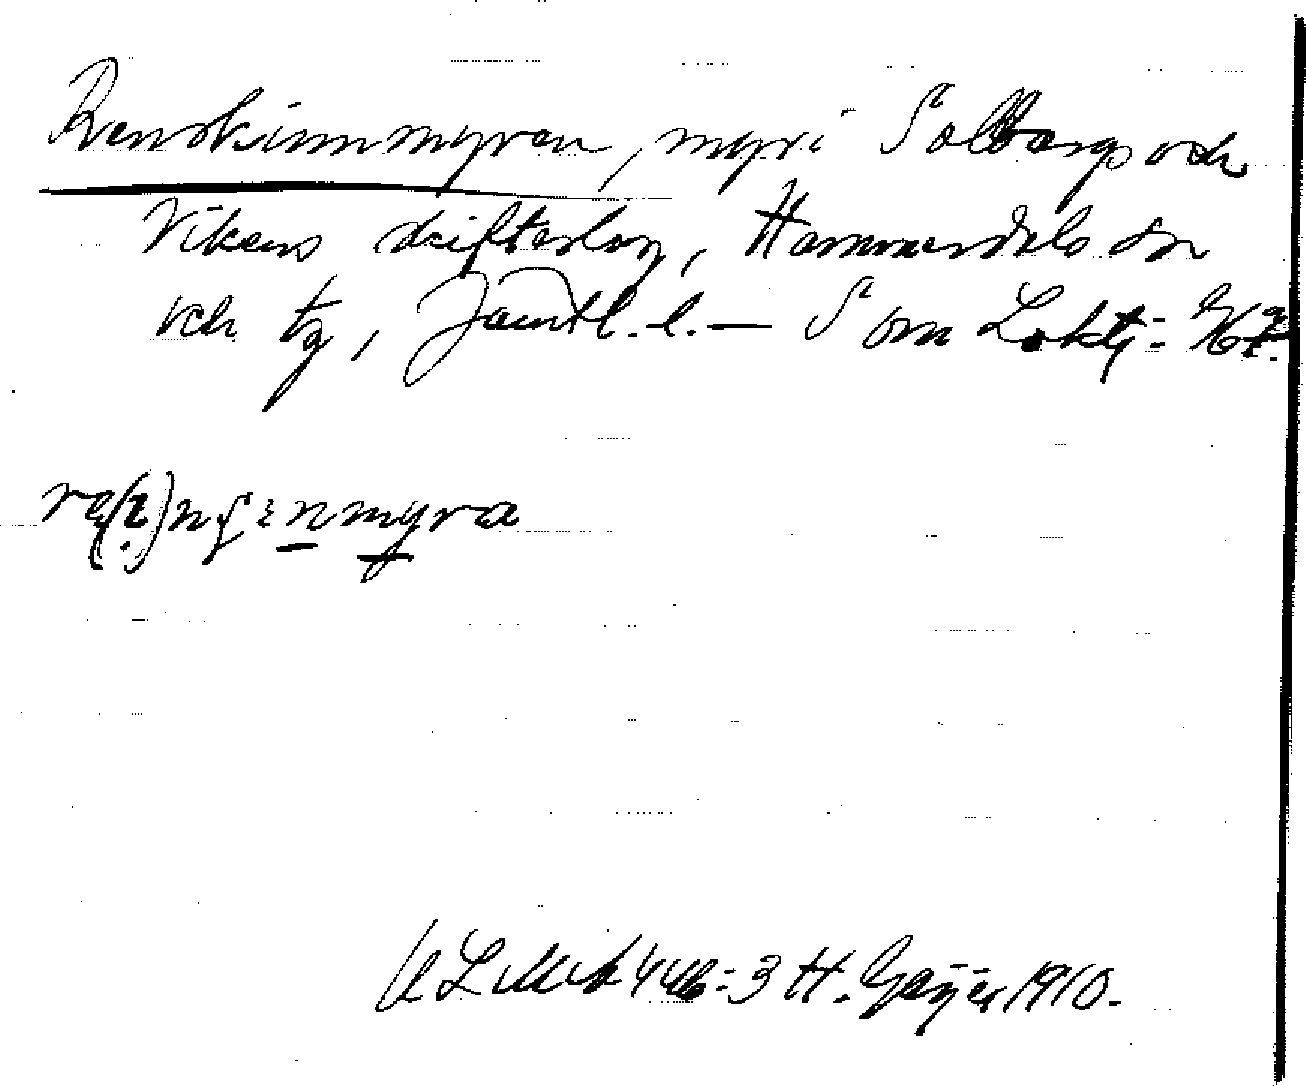 Renskinnmyren, myr i Solbergs och
Vikens skifteslag, Hammerdals sn
och tg, Jämtl. l. — S om Loktj:
myra
ULMA 446:3 H. Geijer 1910.